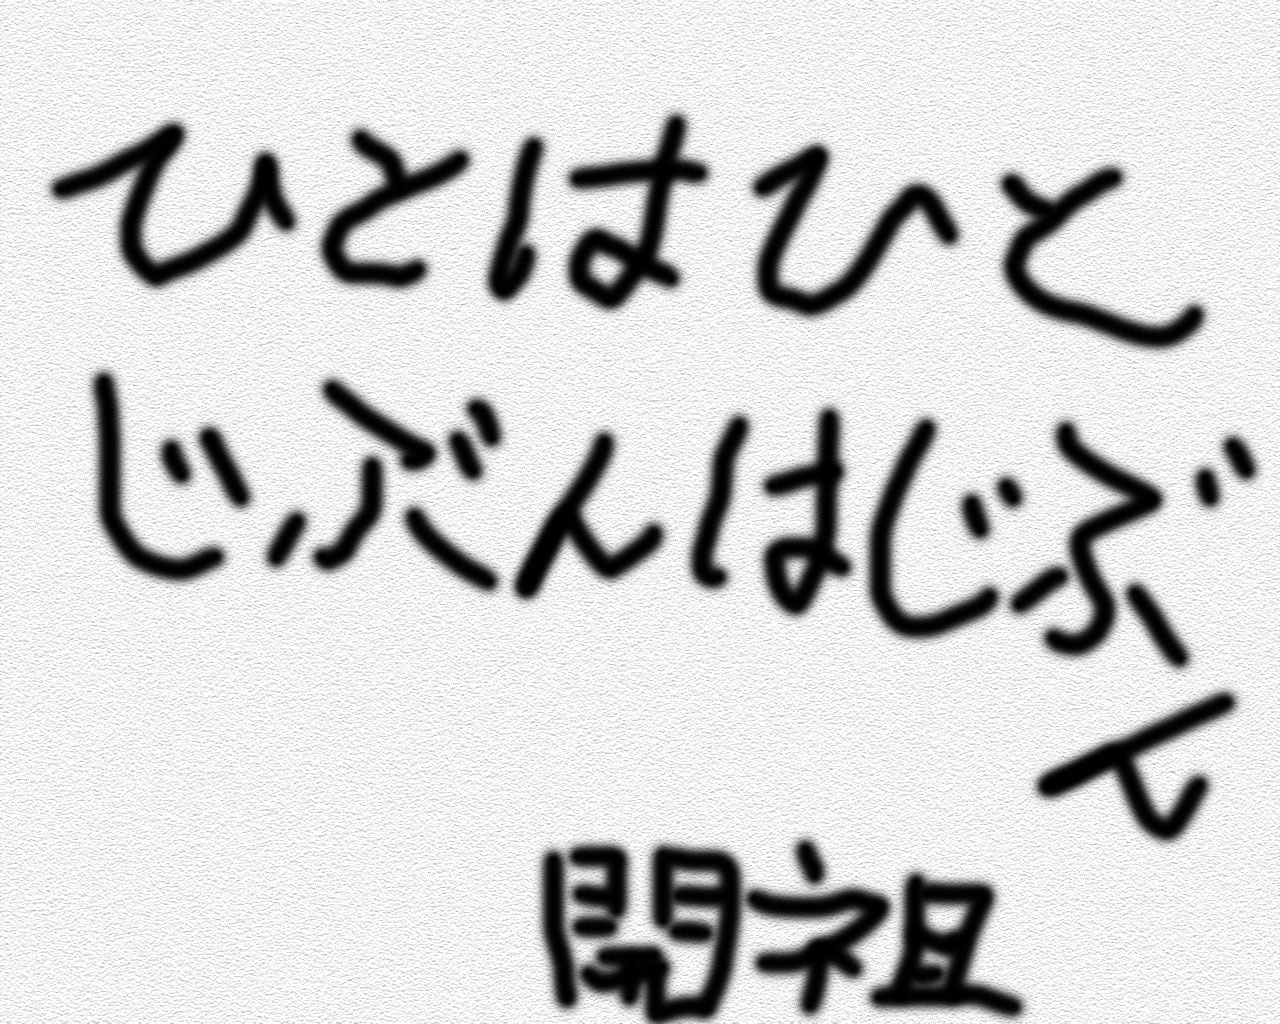 ひとはひと
じぶんはじぶ
ん
開祖